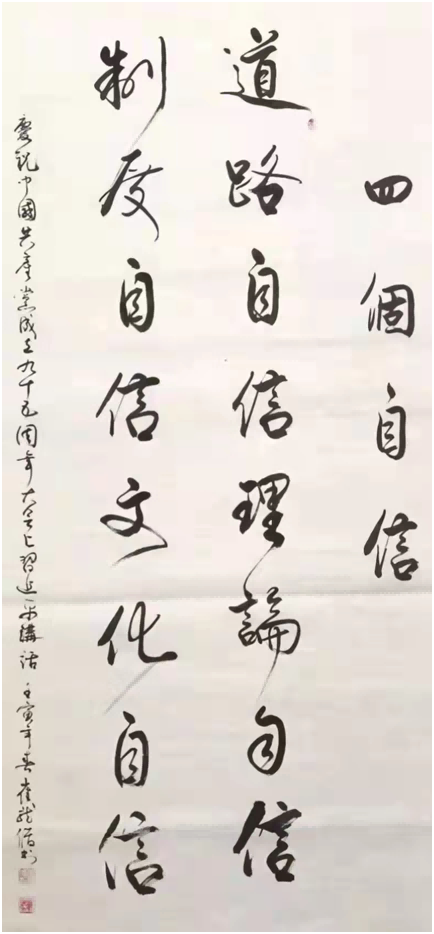 四個自信
道路自信理論自信
制度自信文化自信
慶祝中國共產黨成立九十五周年大會上習近平講話 壬寅年春崔龍偱书